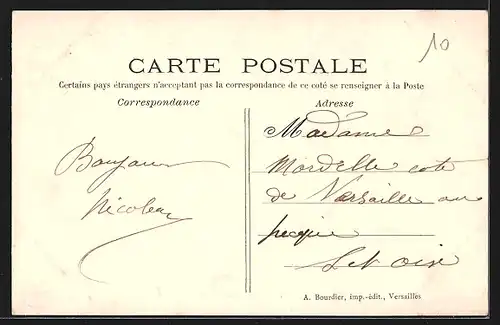 10
CARTE POSTALE
Certains pays étrangers n'acceptant pas la correspondance de ce coté se renseigner à la Poste
Correspondance
Adresse
Bonjour
Nicoleau
Madame
Mardelle cote
de Versaille au
pecque
S et oise
A. Bourdier, imp.-édit., Versailles